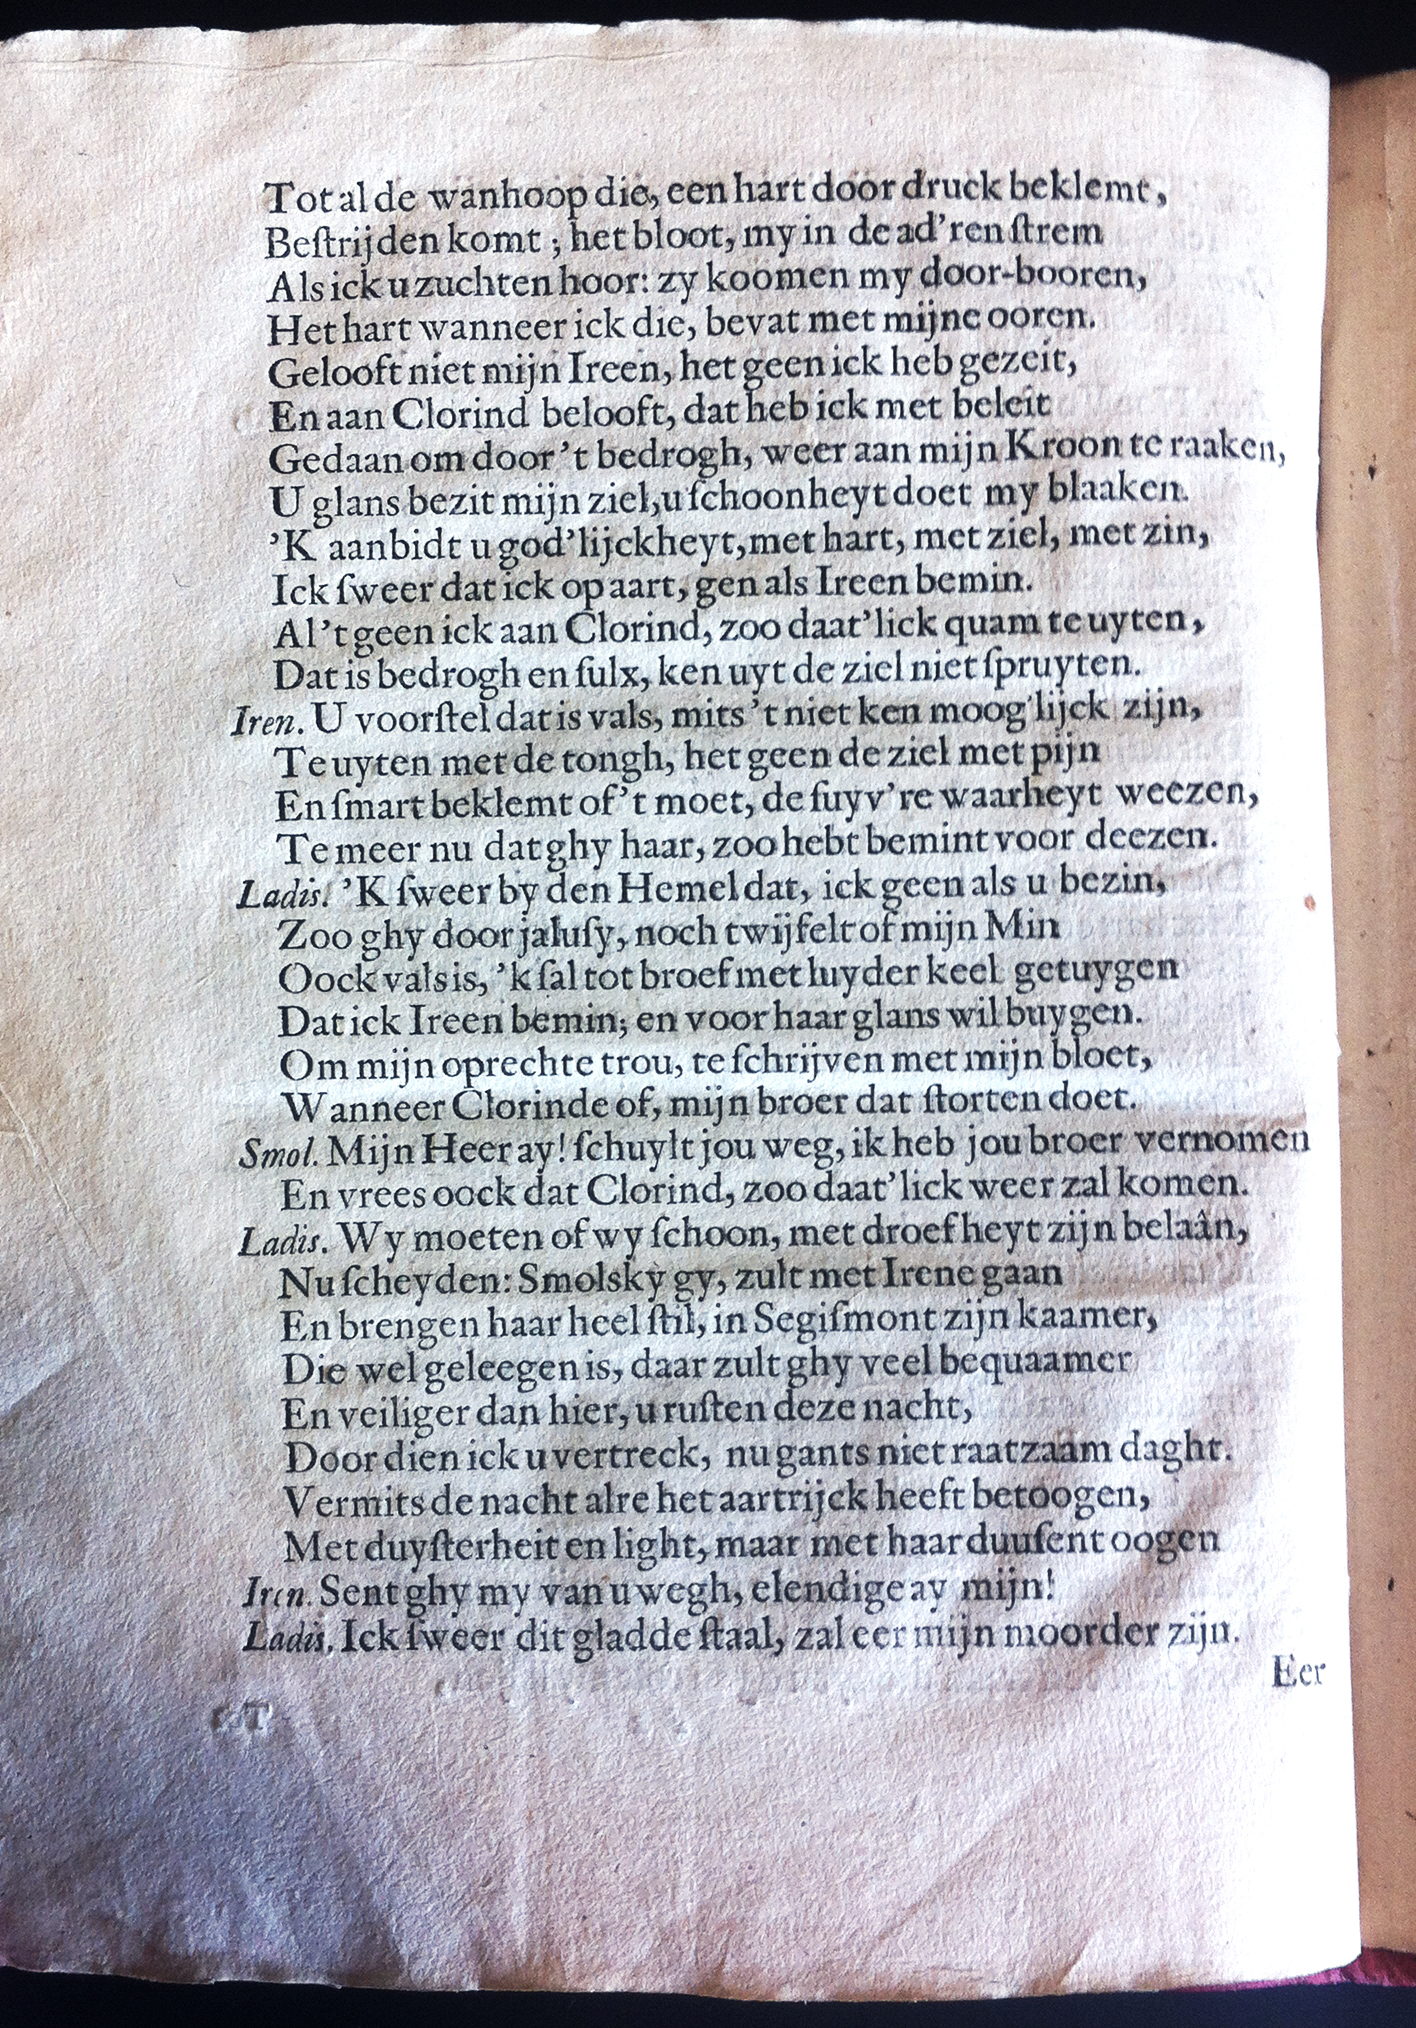 Tot al de wanhoop die, een hart door druck beklemt,
Beſtrijden komt; het bloot, my in de ad'ren ſtrem
Als ick u zuchten hoor: zy koomen my door-booren,
Het hart wanneer ick die, bevat met mijne ooren.
Gelooft niet mijn Ireen, het geen ick heb gezeit,
En aan Clorind belooft, dat heb ick met beleit
Gedaan om door 't bedrogh, weer aan mijn Kroon te raaken,
U glans bezit mijn ziel, u ſchoonheyt doet my blaaken.
'K aanbidt u god'lijckheyt, met hart, met ziel, met zin,
Ick ſweer dat ick op aart, gen als Ireen bemin.
Al 't geen ick aan Clorind, zoo daat'lick quam te uyten,
Dat is bedrogh en ſulx, ken uyt de ziel niet ſpruyten.
Iren. U voorſtel dat is vals, mits 't niet ken moog'lijck zijn,
Te uyten met de tongh, het geen de ziel met pijn
En ſmart beklemt of 't moet, de ſuyv're waarheyt weezen,
Te meer nu dat ghy haar, zoo hebt bemint voor deezen.
Ladis. 'K ſweer by den Hemel dat, ick geen als u bezin,
Zoo ghy door jaluſy, noch twijfelt of mijn Min
Oock vals is, 'k ſal tot broef met luyder keel getuygen
Dat ick Ireen bemin; en voor haar glans wil buygen.
Om mijn oprechte trou, te ſchrijven met mijn bloet,
Wanneer Clorinde of, mijn broer dat ſtorten doet.
Smol. Mijn Heer ay! ſchuylt jou weg, ik heb jou broer vernomen
En vrees oock dat Clorind, zoo daat'lick weer zal komen.
Ladis. Wy moeten of wy ſchoon, met droefheyt zijn belaân,
Nu ſcheyden: Smolsky gy, zult met Irene gaan
En brengen haar heel ſtil, in Segiſmont zijn kaamer,
Die wel geleegen is, daar zult ghy veel bequaamer
En veiliger dan hier, u ruſten deze nacht,
Door dien ick u vertreck, nu gants niet raatzaam daght.
Vermits de nacht alre het aartrijck heeft betoogen,
Met duyſterheit en light, maar met haar duuſent oogen
Iren. Sent ghy my van u wegh, elendige ay mijn!
Ladis. Ick ſweer dit gladde ſtaal, zal eer mijn moorder zijn.
Eer